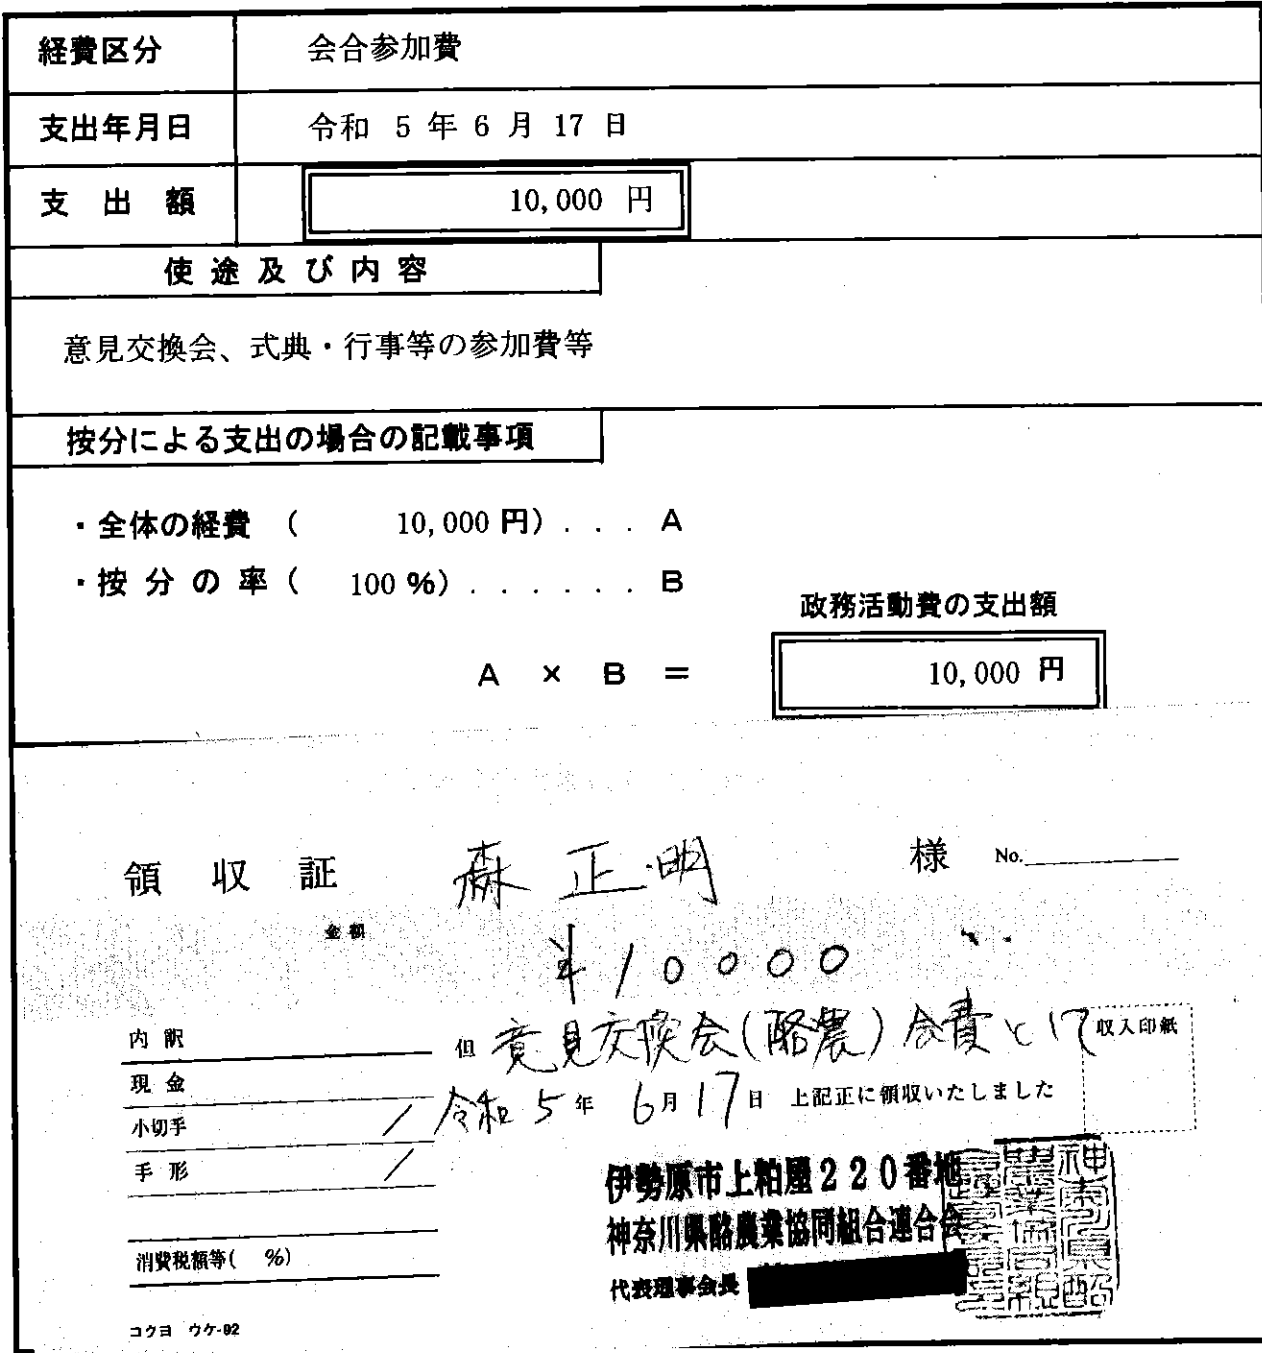 経費区分 会合参加費
支出年月日 令和 5 年 6 月 17 日
支出額 10,000 円
使途及び内容
意見交換会、式典・行事等の参加費等
按分による支出の場合の記載事項
・全体の経費 ( 10,000 円) . . . A
・按分の率 ( 100 %) . . . . . . B
政務活動費の支出額
A × B = 10,000 円
領収証 森 正明 様 No.
金額
¥10000
内訳
但 意見交換会(酪農)会費として
収入印紙
現金
令和 5 年 6 月 17 日 上記正に領収いたしました
小切手 /
手形 /
伊勢原市上粕屋220番地
神奈川県酪農業協同組合連合会
消費税額等( %)
代表理事会長
コクヨ ウケ-92